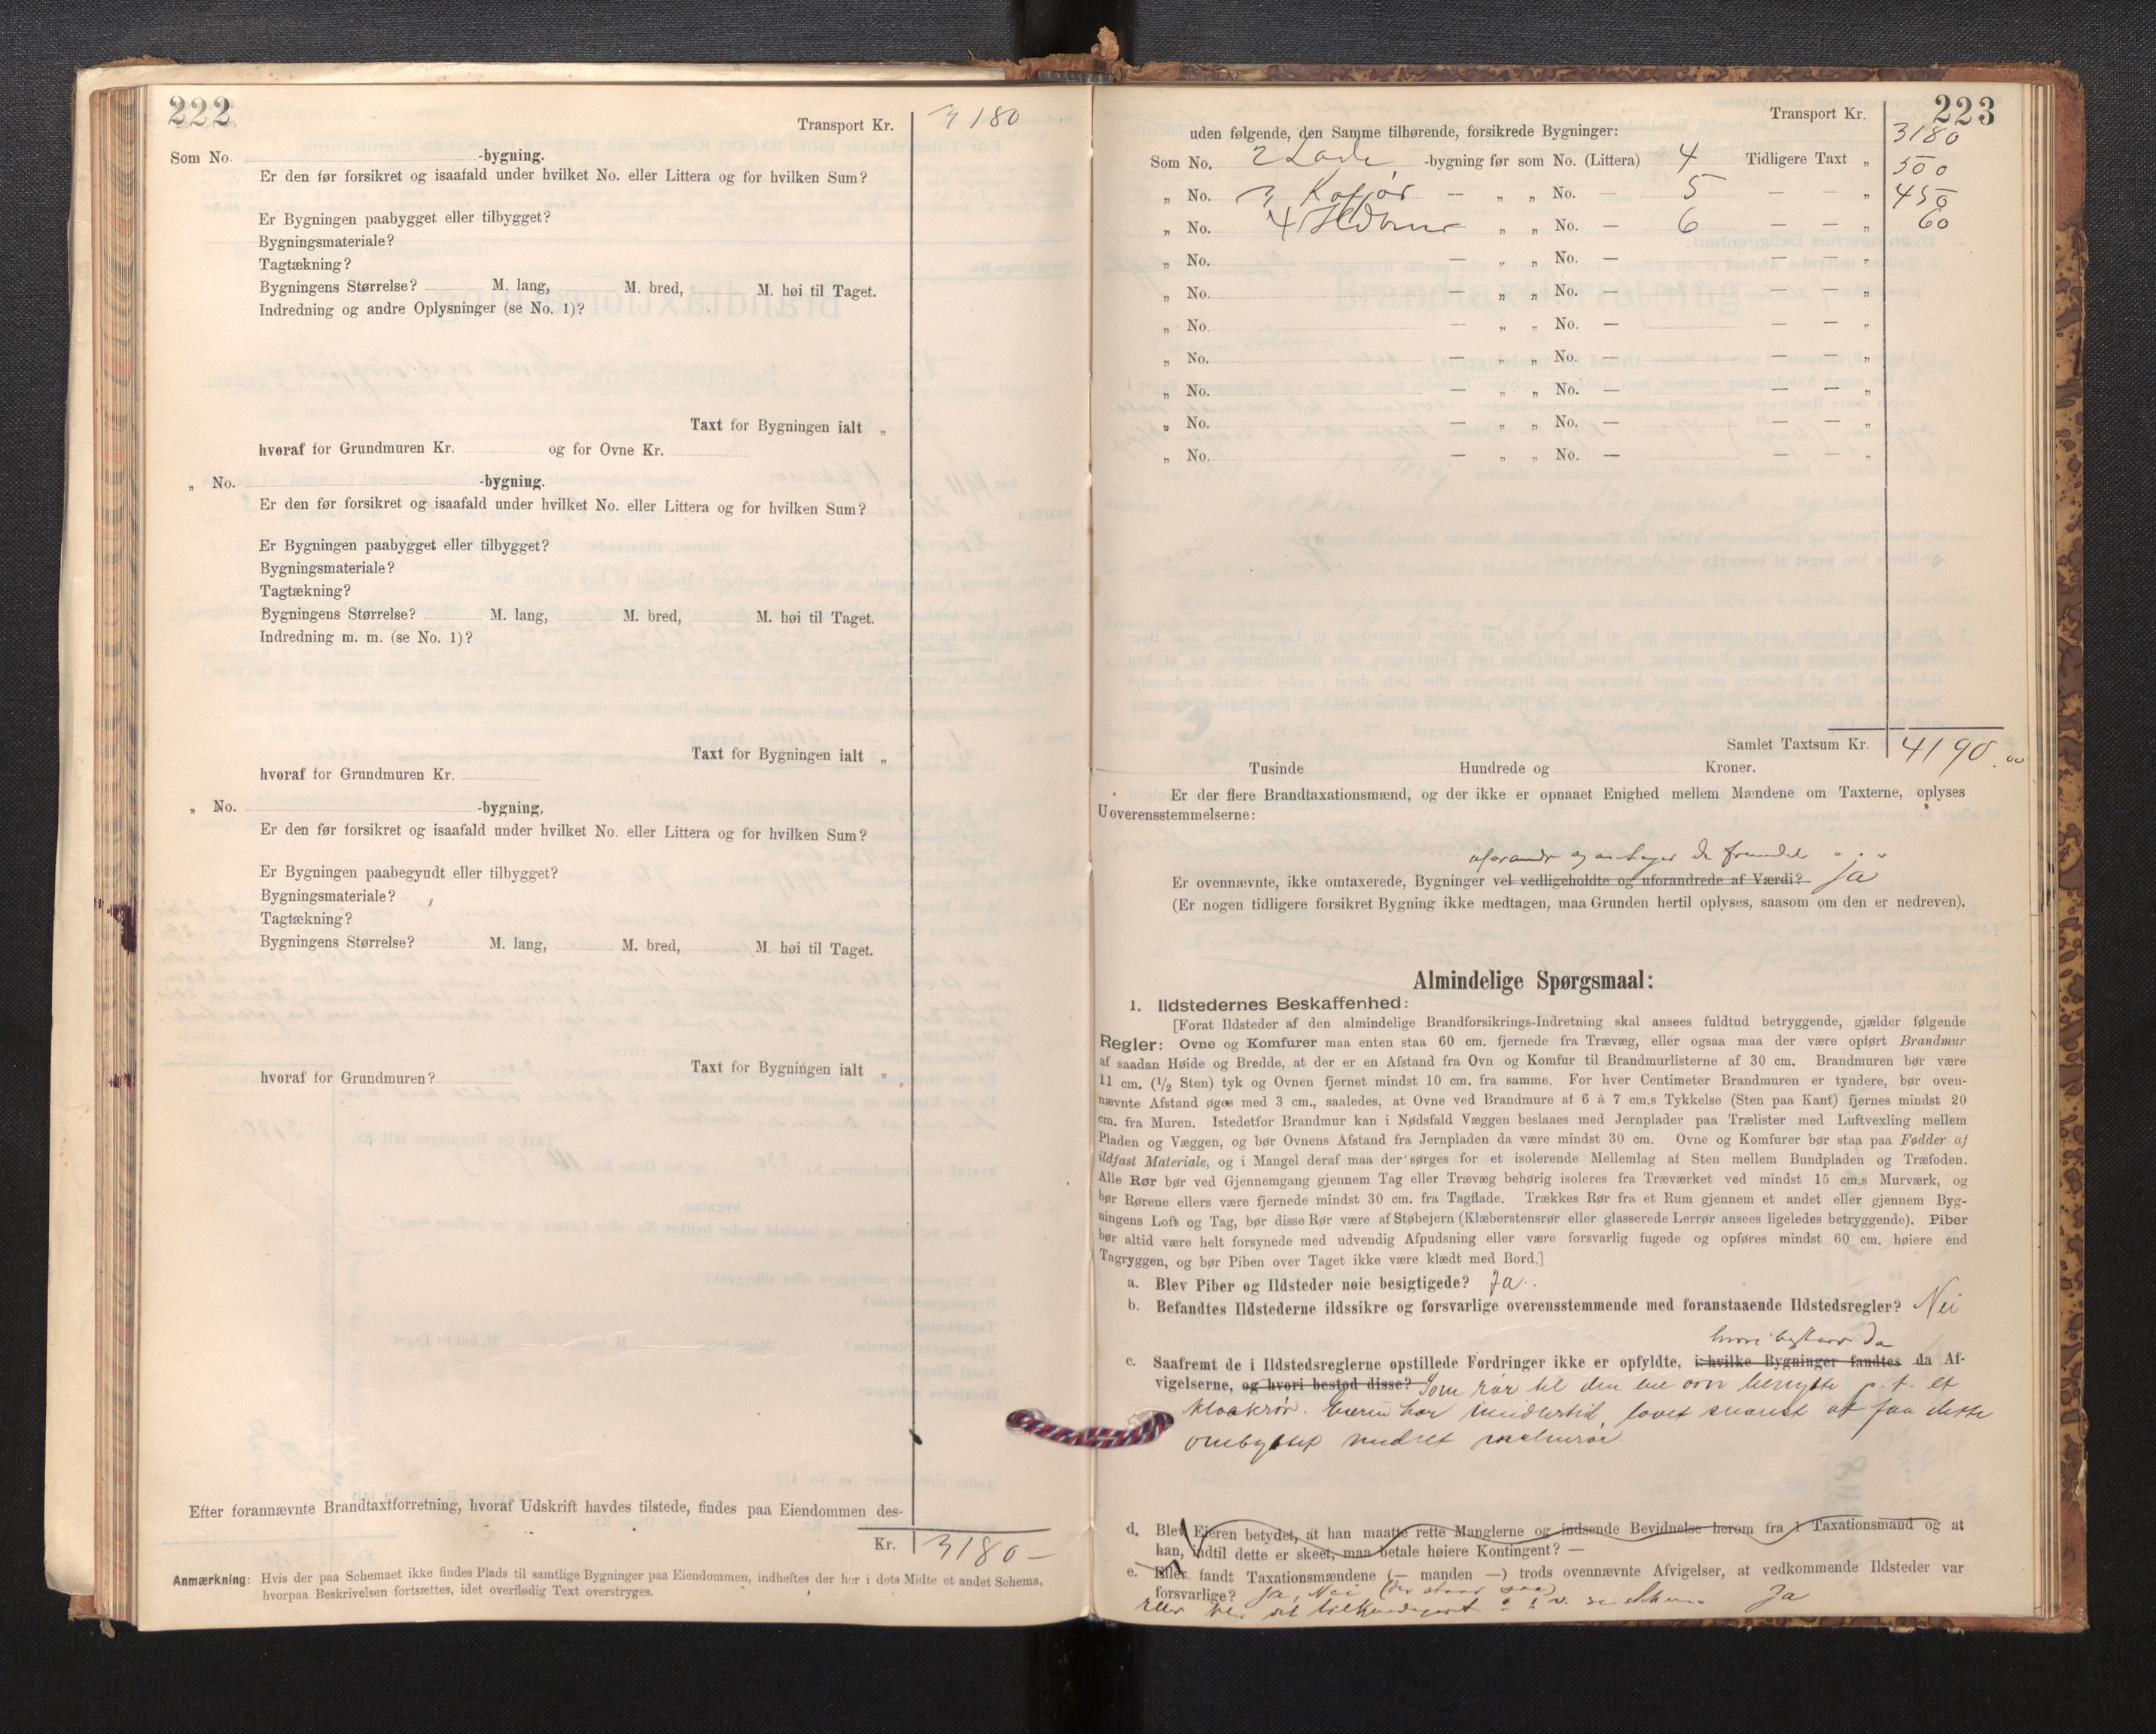 222
Transport Kr. 3180
Som No. -bygning.
Er den før forsikret og isaafald under hvilket No. eller Littera og for hvilken Sum?
Er Bygningen paabygget eller tilbygget?
Bygningsmateriale?
Tagtækning?
Bygningens Størrelse? M. lang, M. bred, M. høi til Taget.
Indredning og andre Oplysninger (se No. 1)?
Taxt for Bygningen ialt „
hvoraf for Grundmuren Kr. og for Ovne Kr.
„ No. -bygning.
Er den før forsikret og isaafald under hvilket No. eller Littera og for hvilken Sum?
Er Bygningen paabygget eller tilbygget?
Bygningsmateriale?
Tagtækning?
Bygningens Størrelse? M. lang, M. bred, M. høi til Taget.
Indredning m. m. (se No. 1)?
Taxt for Bygningen ialt „
hvoraf for Grundmuren Kr.
„ No. -bygning,
Er den før forsikret og isaafald under hvilket No. eller Littera og for hvilken Sum?
Er Bygningen paabegyudt eller tilbygget?
Bygningsmateriale?
Tagtækning?
Bygningens Størrelse? M. lang, M. bred, M. høi til Taget.
Taxt for Bygningen ialt „
hvoraf for Grundmuren?
Efter forannævnte Brandtaxtforretning, hvoraf Udskrift havdes tilstede, findes paa Eiendommen des-
Kr. 3180 —
Anmærkning: Hvis der paa Schemaet ikke findes Plads til samtlige Bygninger paa Eiendommen, indheftes der her i dets Midte et andet Schema,
hvorpaa Beskrivelsen fortsættes, idet overflødig Text overstryges.
223
Transport Kr. 3180
uden følgende, den Samme tilhørende, forsikrede Bygninger:
Som No. 2 Lade -bygning før som No. (Littera) 4 Tidligere Taxt „ 500
„ No. 3 Kofjør — „ „ No. — 5 — — „ 450
„ No. 4 „ „ No. — 6 — — „ 60
„ No. — „ „ No. — — — „
„ No. — „ „ No. — — — „
„ No. — „ „ No. — — — „
„ No. — „ „ No. — — — „
„ No. — „ „ No. — — — „
„ No. — „ „ No. — — — „
„ No. — „ „ No. — — — „
Samlet Taxtsum Kr. 4190.00
Tusinde Hundrede og Kroner.
Er der flere Brandtaxationsmænd, og der ikke er opnaaet Enighed mellem Mændene om Taxterne, oplyses
Uoverensstemmelserne:
Er ovennævnte, ikke omtaxerede, Bygninger vel vedligeholdte og uforandrede af Værdi? Ja
(Er nogen tidligere forsikret Bygning ikke medtagen, maa Grunden hertil oplyses, saasom om den er nedreven).
Almindelige Spørgsmaal:
1. Ildstedernes Beskaffenhed:
[Forat Ildsteder af den almindelige Brandforsikrings-Indretning skal ansees fuldtud betryggende, gjælder følgende
Regler: Ovne og Komfurer maa enten staa 60 cm. fjernede fra Trævæg, eller ogsaa maa der være opført Brandmur
af saadan Høide og Bredde, at der er en Afstand fra Ovn og Komfur til Brandmurlisterne af 30 cm. Brandmuren bør være
11 cm. (1/2 Sten) tyk og Ovnen fjernet mindst 10 cm. fra samme. For hver Centimeter Brandmuren er tyndere, bør oven-
nævnte Afstand øges med 3 cm., saaledes, at Ovne ved Brandmure af 6 à 7 cm.s Tykkelse (Sten paa Kant) fjernes mindst 20
cm. fra Muren. Istedetfor Brandmur kan i Nødsfald Væggen beslaaes med Jernplader paa Trælister med Luftvexling mellem
Pladen og Væggen, og bør Ovnens Afstand fra Jernpladen da være mindst 30 cm. Ovne og Komfurer bør staa paa Fødder af
ildfast Materiale, og i Mangel deraf maa der sørges for et isolerende Mellemlag af Sten mellem Bundpladen og Træfoden.
Alle Rør bør ved Gjennemgang gjennem Tag eller Trævæg behørig isoleres fra Træværket ved mindst 15 cm.s Murværk, og
bør Rørene ellers være fjernede mindst 30 cm. fra Tagflade. Trækkes Rør fra et Rum gjennem et andet eller gjennem Byg-
ningens Loft og Tag, bør disse Rør være af Støbejern (Klæberstensrør eller glasserede Lerrør ansees ligeledes betryggende). Piber
bør altid være helt forsynede med udvendig Afpudsning eller være forsvarlig fugede og opføres mindst 60 cm. høiere end
Tagryggen, og bør Piben over Taget ikke være klædt med Bord.]
a. Blev Piber og Ildsteder nøie besigtigede? Ja.
b. Befandtes Ildstederne ildssikre og forsvarlige overensstemmende med foranstaaende Ildstedsregler? Nei
hvori bestaar da
c. Saafremt de i Ildstedsreglerne opstillede Fordringer ikke er opfyldte, i hvilke Bygninger fandtes da Af-
vigelserne, og hvori bestod disse? Som rør til den ene ovn benyttes p. t. et
blaakrør. Eieren har imidlertid lovet snarest at faa dette
ombyttet med et
d. Blev Eieren betydet, at han maatte rette Manglerne og indsende Bevidnelse herom fra 1 Taxationsmand og at
han, indtil dette er skeet, maa betale høiere Kontingent? —
e. Eller fandt Taxationsmændene (— manden —) trods ovennævnte Afvigelser, at vedkommende Ildsteder var
forsvarlige? Ja, Nei (der staar saa)
eller det Ja